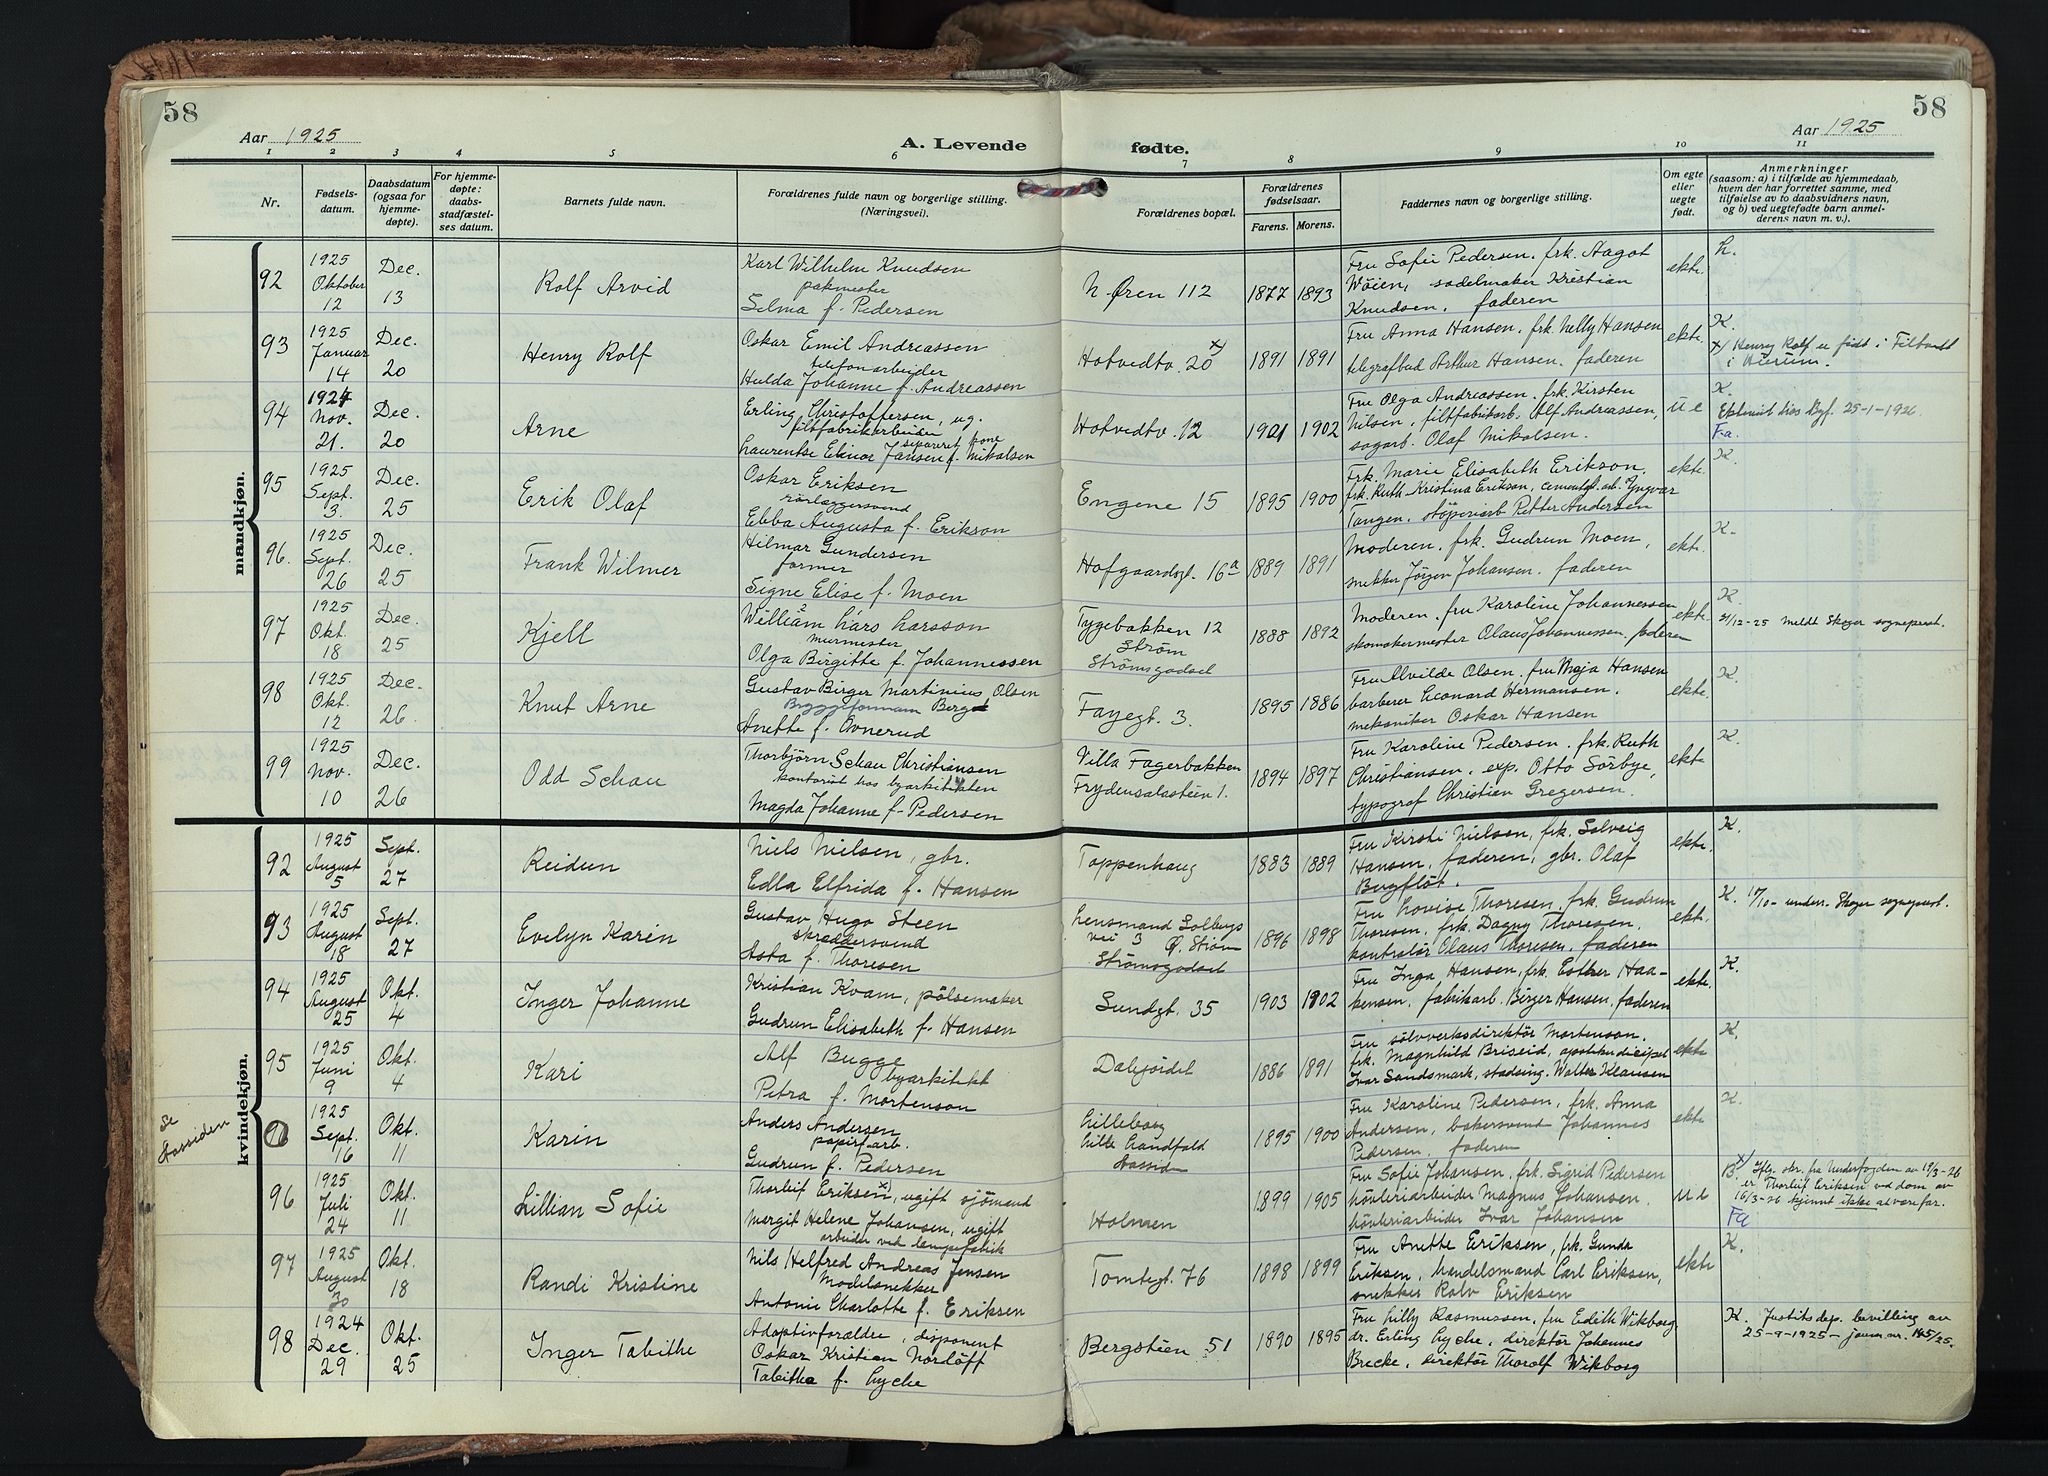 58
58
Aar 1925
A. Levende fødte.
Aar 1925
1 2 3 4 5 6 7 8 9 10 11
Nr.
Fødsels-
datum.
Daabsdatum
(ogsaa for
hjemme-
døpte).
For hjemme-
døpte:
daabs-
stadfæstel-
ses datum.
Barnets fulde navn.
Forældrenes fulde navn og borgerlige stilling.
(Næringsvei).
Forældrenes bopæl.
Forældrenes
fødselsaar.
Farens. Morens.
Faddernes navn og borgerlige stilling.
Om egte
eller
uegte
født.
Anmerkninger
(saasom: a) i tilfælde av hjemmedaab,
hvem der har forrettet samme, med
tilføielse av to daabsvidners navn,
og b) ved uegtefødte barn anmel-
derens navn m. v.).
mandkjøn.
92
1925
Oktober
12
Dec.
13
Rolf Arvid
Karl Wilhelm Knudsen
pakmester
Selma f. Pedersen
N. Øren 112
1877 1893
Fru Sofie Pedersen. frk. Aagot
Wöien, sadelmaker Kristian
Knudsen. faderen
ekte.
h.
93
1925
Januar
14
Dec.
20
Henry Rolf
Oskar Emil Andreassen
telefonarbeider
Hulda Johanne f. Andreassen
Hotvedtv. 20 x)
1891 1891
Fru Anna Hansen. frk. Nelly Hansen
telegrafbud Arthur Hansen. faderen
ekte.
K.
x) Henry Rolf er født i
i Bærum.
94
1924
Nov.
21.
Dec.
20
Arne
Erling Christoffersen, ug.
filtfabrikarbeider
separert kone
Laurentse Elinor Jansen f. Mikalsen
Hotvedtv. 12
1901 1902
Fru Olga Andreassen. frk. Kirsten
Nilsen, filtfabrikarb. Alf Andreassen,
sagarb. Olaf Mikalsen.
u e
K.
hos Byf. 25-1-1926
Fa.
95
1925
Sept.
3
Dec.
25
Erik Olaf
Oskar Eriksen
rörlæggersvend
Ebba Augusta f. Erikson
Engene 15
1895 1900
Frk. Marie Elisabeth Erikson,
frk. Ruth Kristina Erikson, cementst. arb. Yngvar
Tangen. støperarb Petter Andersen
ekte.
K.
96.
1925
Sept.
26
Dec.
25
Frank Wilmer
Hilmar Gundersen
former
Signe Elise f. Moen
Hofgaardsgt. 16a
1889 1891
Moderen. frk. Gudrun Moen,
snekker Jörgen Johansen. faderen
ekte.
K.
97
1925
Okt.
18
Dec.
25
Kjell
William Lars Larsson
murmester
Olga Birgitte f. Johannessen
Tygebakken 12
Ström
Strömsgodset
1888 1892
Moderen. fru Karoline Johannessen
skomakermester Claus Johannessen. faderen
ekte.
K.
31/12-25 meldt Skoger sogneprest.
98
1925
Okt.
12
Dec.
26
Knut Arne
Gustav Birger Martinius Olsen
Bryggeformann Berg
Anette f. Ovnerud
Fayegt. 3.
1895 1886
Fru Alvilde Olsen. fru Maja Hansen
barberer Leonard Hermansen.
mekaniker Oskar Hansen
ekte.
K.
99
1925
Nov.
10
Dec.
26
Odd Schau
Thorbjörn Schau Christiansen
kontorist hos byarkitekten
Magda Johanne f. Pedersen
Villa Fagerbakken
Frydensalsstein 1.
1894 1897
Fru Karoline Pedersen. frk. Ruth
Christiansen. exp. Otto Sörbye,
typograf Christian Gregersen.
ekte
K.
kvindekjøn.
92
1925
August
5
Sept.
27
Reidun
Niels Nielsen, gbr.
Edla Elfrida f. Hansen
Toppenhaug
1883 1889
Fru Kirsti Nielsen, frk. Solveig
Hansen, faderen, gbr. Olaf
Bugflöt.
ekte.
K.
93
1925
August
18
Sept.
27
Evelyn Karin
Gustav Hugo Steen
skræddersvend
Asta f. Thoresen
Lensmand Solbergs
vei 3 Ø. Ström
Strömsgodset
1896 1898
Fru Lovise Thoresen, frk. Gudrun
Thoresen, frk. Dagny Thoresen,
kontorist Claus Thoresen, faderen
ekte.
K. 17/10 - underr. Skoger sogneprest.
94
1925
August
25
Okt.
4
Inger Johanne
Kristian Kvam, pölsemaker
Gudrun Elisabeth f. Hansen
Sundgt. 35
1903 1902
Fru Inga Hansen, frk. Esther Haa-
kensen, fabrikarb. Birger Hansen, faderen
ekte.
K.
95
1925
Juni
9
Okt.
4
Kari
Alf Bugge
byarkitekt
Petra f. Mortenson
Dalejordet
1886 1891
Fru sölvverksdirektör Mortenson.
frk. Magnhild Briseid, apothekdiscipel
Ivar Sandsmark, stadsing. Walter Klausen
ekte
K.
Se
Aassiden
1925
Sept.
16
Okt.
11
Karin
Anders Andersen
papirf. arb.
Gudrun f. Pedersen
Lilleborg
Lille Landfald
Aassiden
1895 1900
Fru Karoline Pedersen, frk. Anna
Andersen, bakersvend Johannes
Pedersen, faderen
ekte
K.
96
1925
Juli
24
Okt.
11
Lillian Sofie
Thorleif Eriksen x), ugift sjömand
Margit Helene Johansen, ugift
arbeider ved lampefabrik
Holmen
1899 1905
Fru Sofie Johansen, frk. Sigrid Pedersen
hövleriarbeider Magnus Johansen,
hövleriarbeider Ivar Johansen
u e
B x) Iflg. skr. fra Underfogden av 19/3-26
er Thorleif Eriksen ved dom av
16/3-26 kjennt ikke at være far.
Fa
97
1925
August
30
Okt.
18
Randi Kristine
Nils Helfred Andreas Jensen
Modelsnekker
Antonie Charlotte f. Eriksen
Tomtegt. 76
1898 1899
Fru Anette Eriksen, frk. Gunda
Eriksen, handelsmand Carl Eriksen,
snekker Rolv Eriksen
ekte
K.
98
1924
Dec.
29
Okt.
25
Inger Tabithe
Adoptivforældre, disponent
Oskar Kristian Nordöff
Tabitha f. Lyche
Bergstien 51
1890 1895
Fru Lilly Rasmussen, fru Edith Wikborg
dr. Erling Lyche, direktör Johannes
Brecke, direktör Thorolf Wikborg
K. Justitsdep. bevilling av
25-9-1925 - journ. nr.